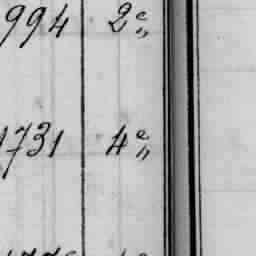 994 2e„
1731 4e„